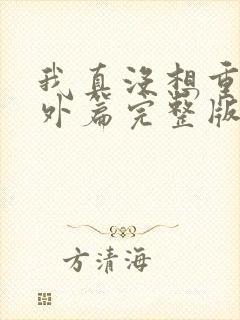 我真没想重
外篇完整版
方清海